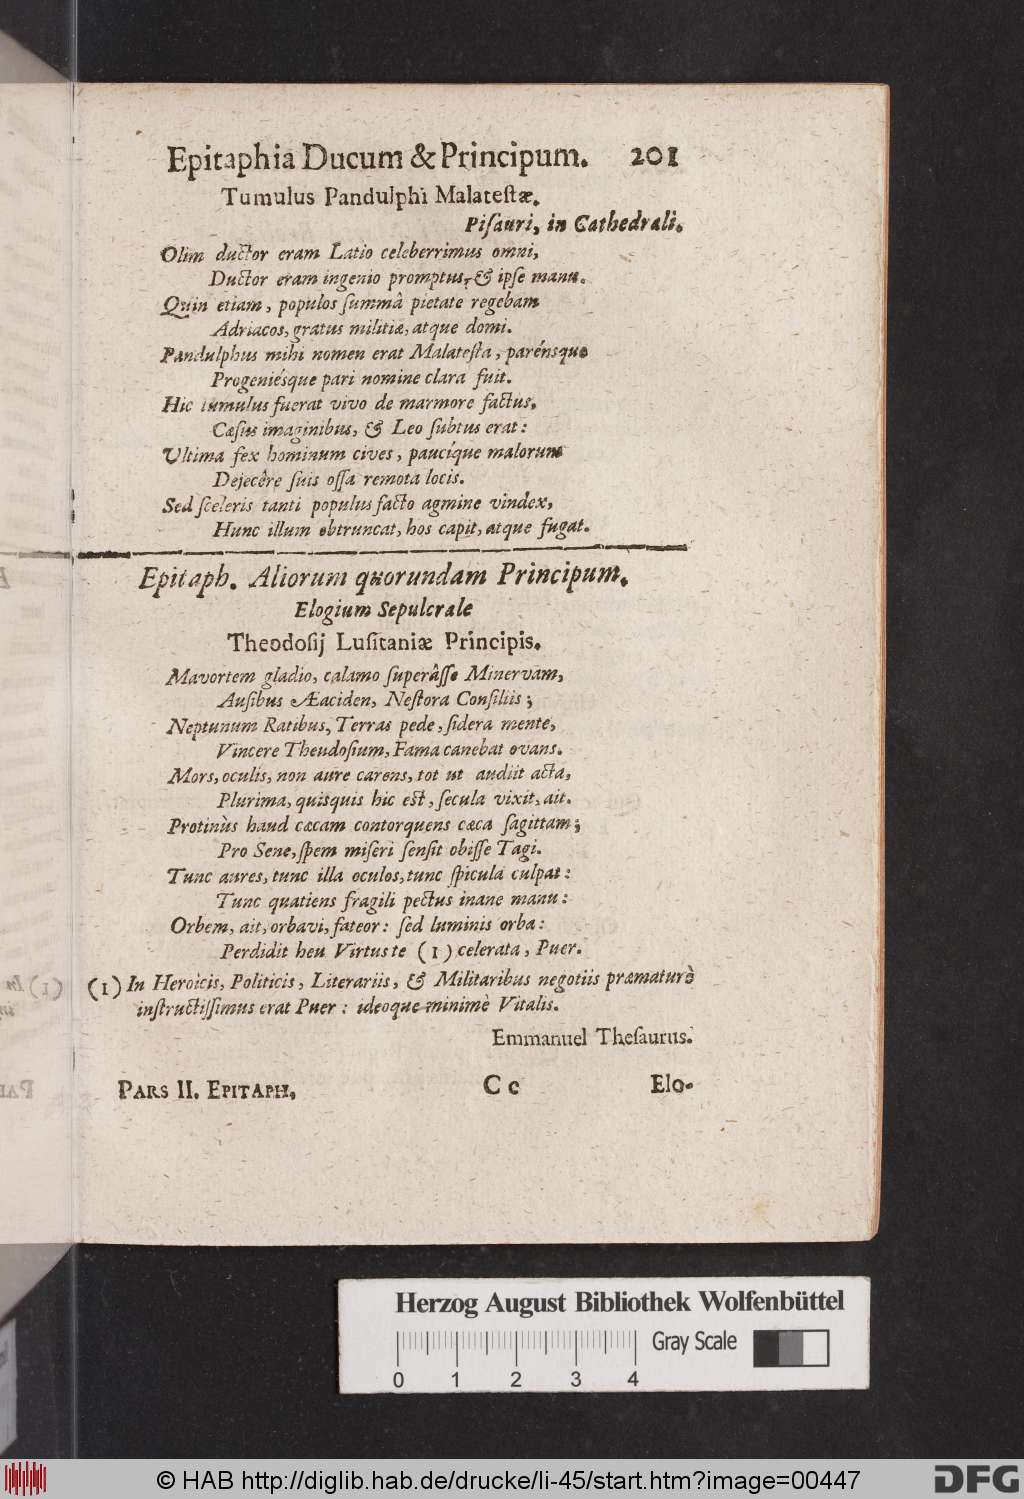 Epitaphia Ducum & Principum. 201
Tumulus Pandulphi Malatestæ.
Piſauri, in Cathedrali.
Olim ductor eram Latio celeberrimus omni,
Ductor eram ingenio promptus, & ipſe manu.
Quin etiam, populos ſummâ pietate regebam
Adriacos, gratus militiæ, atque domi.
Pandulphus mihi nomen erat Malateſta, parénsque
Progeniésque pari nomine clara fuit.
Hic tumulus fuerat vivo de marmore factus,
Cæſus imaginibus, & Leo ſubtus erat:
Ultima fex hominum cives, paucíque malorum
Dejecêre ſuis oſſa remota locis.
Sed ſceleris tanti populus facto agmine vindex,
Hunc illum obtruncat, hos capit, atque fugat.
Epitaph. Aliorum quorundam Principum.
Elogium Sepulcrale
Theodoſij Luſitaniæ Principis.
Mavortem gladio, calamo ſuperâſſe Minervam,
Auſibus Æaciden, Neſtora Conſiliis;
Neptunum Ratibus, Terras pede, ſidera mente,
Vincere Theudoſium, Fama canebat ovans.
Mors, oculis, non aure carens, tot ut audiit acta,
Plurima, quisquis hic eſt, ſecula vixit, ait.
Protinùs haud cæcam contorquens cæca ſagittam;
Pro Sene, ſpem miſeri ſenſit obiſſe Tagi.
Tunc aures, tunc illa oculos, tunc ſpicula culpat:
Tunc quatiens fragili pectus inane manu:
Orbem, ait, orbavi, fateor: ſed luminis orba:
Perdidit heu Virtus te (1) celerata, Puer.
(1) In Heroicis, Politicis, Literariis, & Militaribus negotiis præmaturè
inſtructiſſimus erat Puer: ideoque minimè Vitalis.
Emmanuel Theſaurus.
PARS II. EPITAPH. C c Elo-
Herzog August Bibliothek Wolfenbüttel
Gray Scale
0 1 2 3 4
© HAB http://diglib.hab.de/drucke/li-45/start.htm?image=00447
DFG